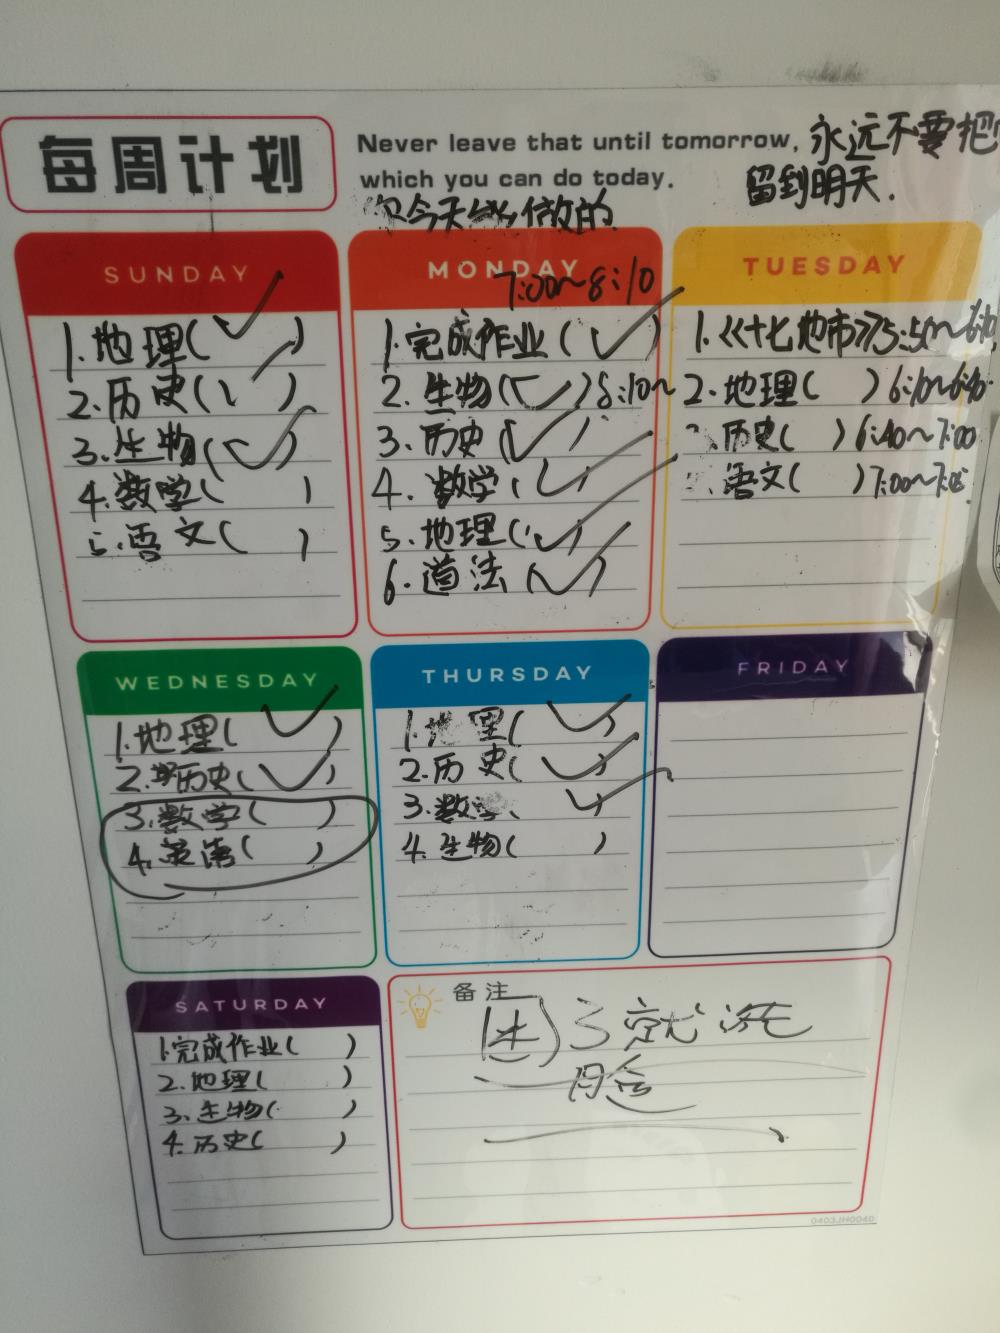 每周计划
Never leave that until tomorrow,
which you can do today.
永远不要把
留到明天.
你今天能够做的
SUNDAY
1.地理( )
2.历史( )
3.生物( )
4.数学( )
5.语文( )
MONDAY
7:00~8:10
1.完成作业( )
2.生物( )8:10~
3.历史( )
4.数学( )
5.地理( )
6.道法( )
TUESDAY
1.《十七地市》5:50~6:10
2.地理( )6:10~6:40
3.历史( )6:40~7:00
语文( )7:00~
WEDNESDAY
1.地理( )
2.历史( )
3.数学( )
4.英语( )
THURSDAY
1.地理( )
2.历史( )
3.数学
4.生物( )
FRIDAY
SATURDAY
1.完成作业( )
2.地理( )
3.生物( )
4.历史( )
备注
困了就洗
0403JH0040